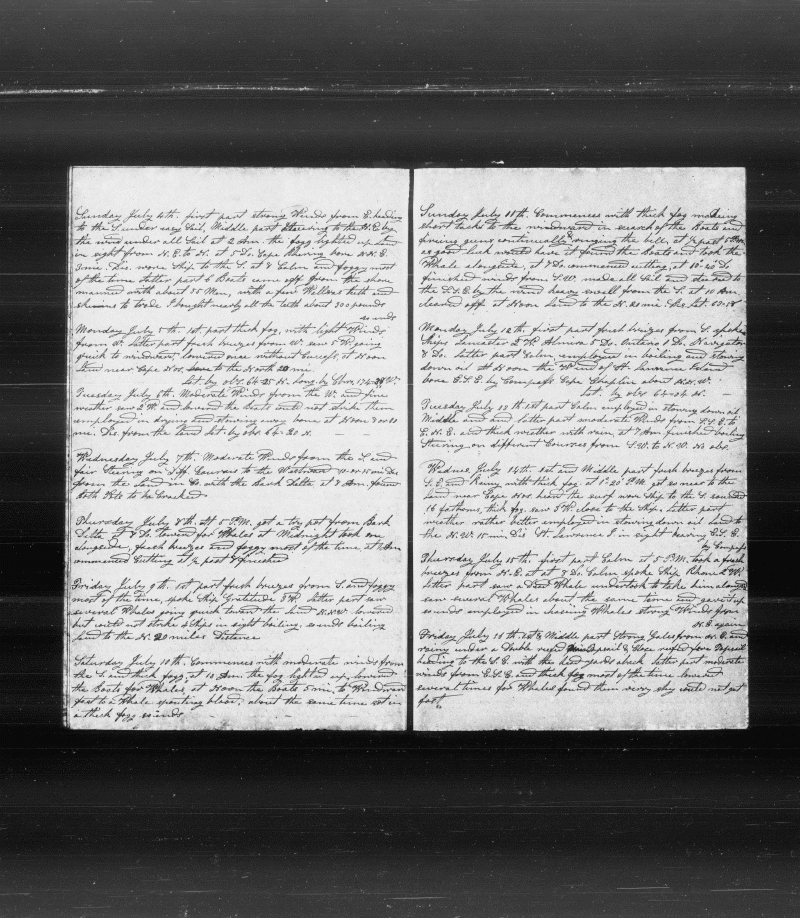 Sunday July 4th. first part strong Winds from E. heading
to the S. under easy Sail, Middle part to the N. E. by
the wind under all Sail at 2 Am. the fogg lighted up land
in sight from N. E. to N. at 5 Do. Cape bearing bore N. N. E.
3 mi. Dis. wore Ship to the S. at 8 Calm and foggy most
of the time latter part 6 Boats came off from the shore
manned with about 45 Men, with a few Wallros teeth and
skins to trade I bought nearly all the teeth about 300 pounds
so ends
Monday July 5th. 1st part thick fog, with light Winds
from W. latter part fresh breezes from W. saw 5 W. going
quick to windward, lowered once without Success, at Noon
land near Cape to the North 20 mi.
Lat by obs. 64-25 N. Long. by Chro. 174-28 W.
Tuesday July 6th. Moderate Winds from the W. and fine
weather saw 2 W. and lowered the Boats could not strike them
employed in drying and stowing away bone at Noon 8 or 10
mi. Dis. from the land Lat by obs 64-20 N
Wednesday July 7th. Moderate Winds from the S. and
fair Steering on Diff. Courses to the Westward 12 or 15 mi Dis
from the Land in Co. with the Bark Delta at 8 Am. found
both Pots to be Cracked
Thursday July 8th. At 5 P.M. got a try pot from Bark
Delta, at 8 Do. lowered for Whales at Midnight took one
alongside, fresh breezes and foggy most of the time, at 4 Am
commenced Cutting at ½ past 8 finished
Friday July 9th. 1st part fresh breezes from S. and foggy
most of the time, spoke Ship Gratitude 3 W. latter part saw
several Whales going quick toward the land N. N. W. lowered
but could not strike 4 Ships in sight boiling, so ends boiling
land to the N. 20 miles Distance
Saturday July 10th. Commences with moderate winds from
the S. and thick fogg, at 10 Am the fog lighted up, lowered
the Boats for Whales at Noon the Boats 5 mi. to Windward
fast to a Whale spouting blood, about the same time set in
a thick fogg so ends
Sunday July 11th. Commences with thick fog making
short tacks to the windward in search of the Boats and
fireing guns continually ringing the bell, at ½ past 5 Pm.
as good luck would have it found the Boats and took the
Whale alongside, at 7 Do. commenced cutting, at 10-40 Do
finished winds from S.W. made all Sail and steered to
the E. S. E. by the wind heavy swell from the S. at 10 Am.
cleared off at Noon land to the N. 20 mi. Dis. Lat. 63-58
Monday July 12th. first part fresh breezes from S. spoke
Ships Lancaster 2 W. Almira 5 Do. Ontario 1 Do. Navigator
8 Do. latter part Calm, employed in boiling and stowing
down oil At Noon the W. end of St. Lawrence Island
bore E. S. E. by Compass Cape Chaplin about N. N. W.
Lat. by obs 64-04 N.
Tuesday July 13th 1st part Calm employed in stowing down oil
Middle and latter part moderate Winds from S. S. E. to
E. N. E. and thick weather with rain, at 7 Am finished boiling
Steering on different Courses from S. W. to N. W. No obs.
Wednes. July 14th. 1st and Middle part fresh breezes from
S. E. and Rainy with thick fog, at 1-20 P.M. got so near to the
land near Cape heard the surf wore Ship to the S. sounded
16 fathoms, thick fog. saw 3 W. close to the Ship. latter part
weather rather better employed in stowing down oil land to
the N. W. 15 mi. Dis. St. Lawrence I. in sight bearing E. S. E.
by Compass
Thursday July 15th. first part Calm at 5 P.M. took a fresh
breezes from N. E. at 7 Do. Calm spoke Ship Rhine 2 W.
latter part saw a Dead Whale undertook to take him along
saw several Whales about the same time and gave it up
so ends employed in chasing Whales strong Winds from
N. E. again
Friday July 16th 1st & Middle part Strong Gales from N. E. and
rainy under a Double reefed Main Topsail & Close reefed fore Topsail
heading to the S. E. with the head yards aback, latter part moderate
winds from E. S. E. and thick fog most of the time lowered
several times for Whales found them very shy could not get
fast.